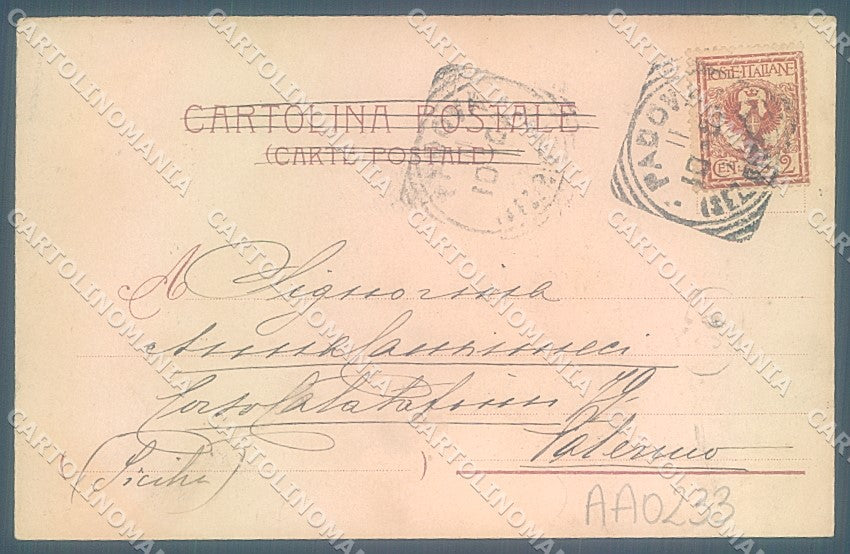 CARTOLINA POSTALE
(CARTE POSTALE)
POSTE·ITALIANE
CEN. 2
PADOVA
A Signorina
Anna
Corso Calatafimi 79
Palermo
(Sicilia)
AA0233
CARTOLINOMANIA